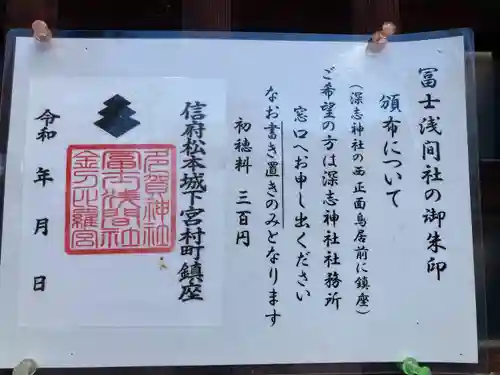 冨士浅間社の御朱印
頒布について
（深志神社の西 正面鳥居前に鎮座）
ご希望の方は深志神社社務所
窓口へお申し出ください
なお書き置きのみとなります
初穂料 三百円
信府松本城下宮村町鎮座
多賀神社
冨士浅間社
金刀比羅宮
令和 年 月 日